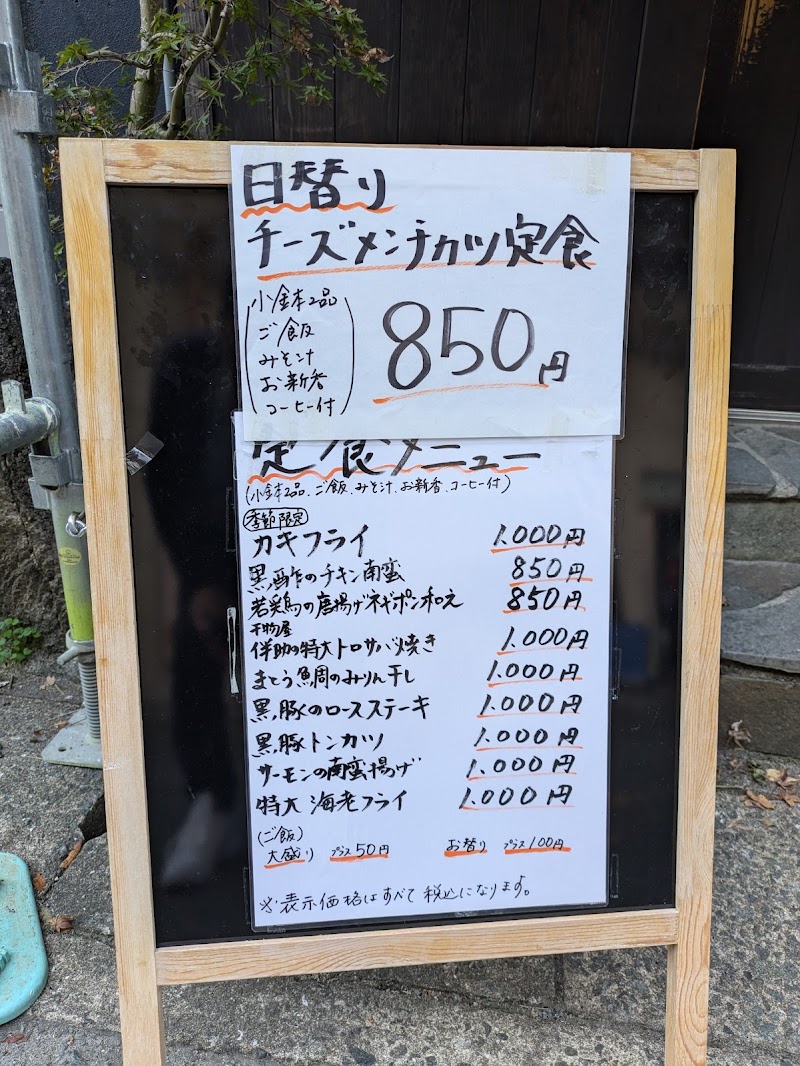 日替り
チーズメンチカツ定食
小鉢2品
ご飯
みそ汁
お新香
コーヒー付
850円
定食メニュー
(小鉢2品、ご飯、みそ汁、お新香、コーヒー付)
季節限定
カキフライ 1.000円
黒酢のチキン南蛮 850円
若菜鳥の唐揚げネギポン和え 850円
干物屋
伴助の特大トロサバ焼き 1.000円
まとう鯛のみりん干し 1.000円
黒豚のロースステーキ 1.000円
黒豚トンカツ 1.000円
サーモンの南蛮揚げ 1.000円
特大海老フライ 1.000円
(ご飯)
大盛り プラス50円 お替り プラス100円
※表示価格はすべて税込になります。